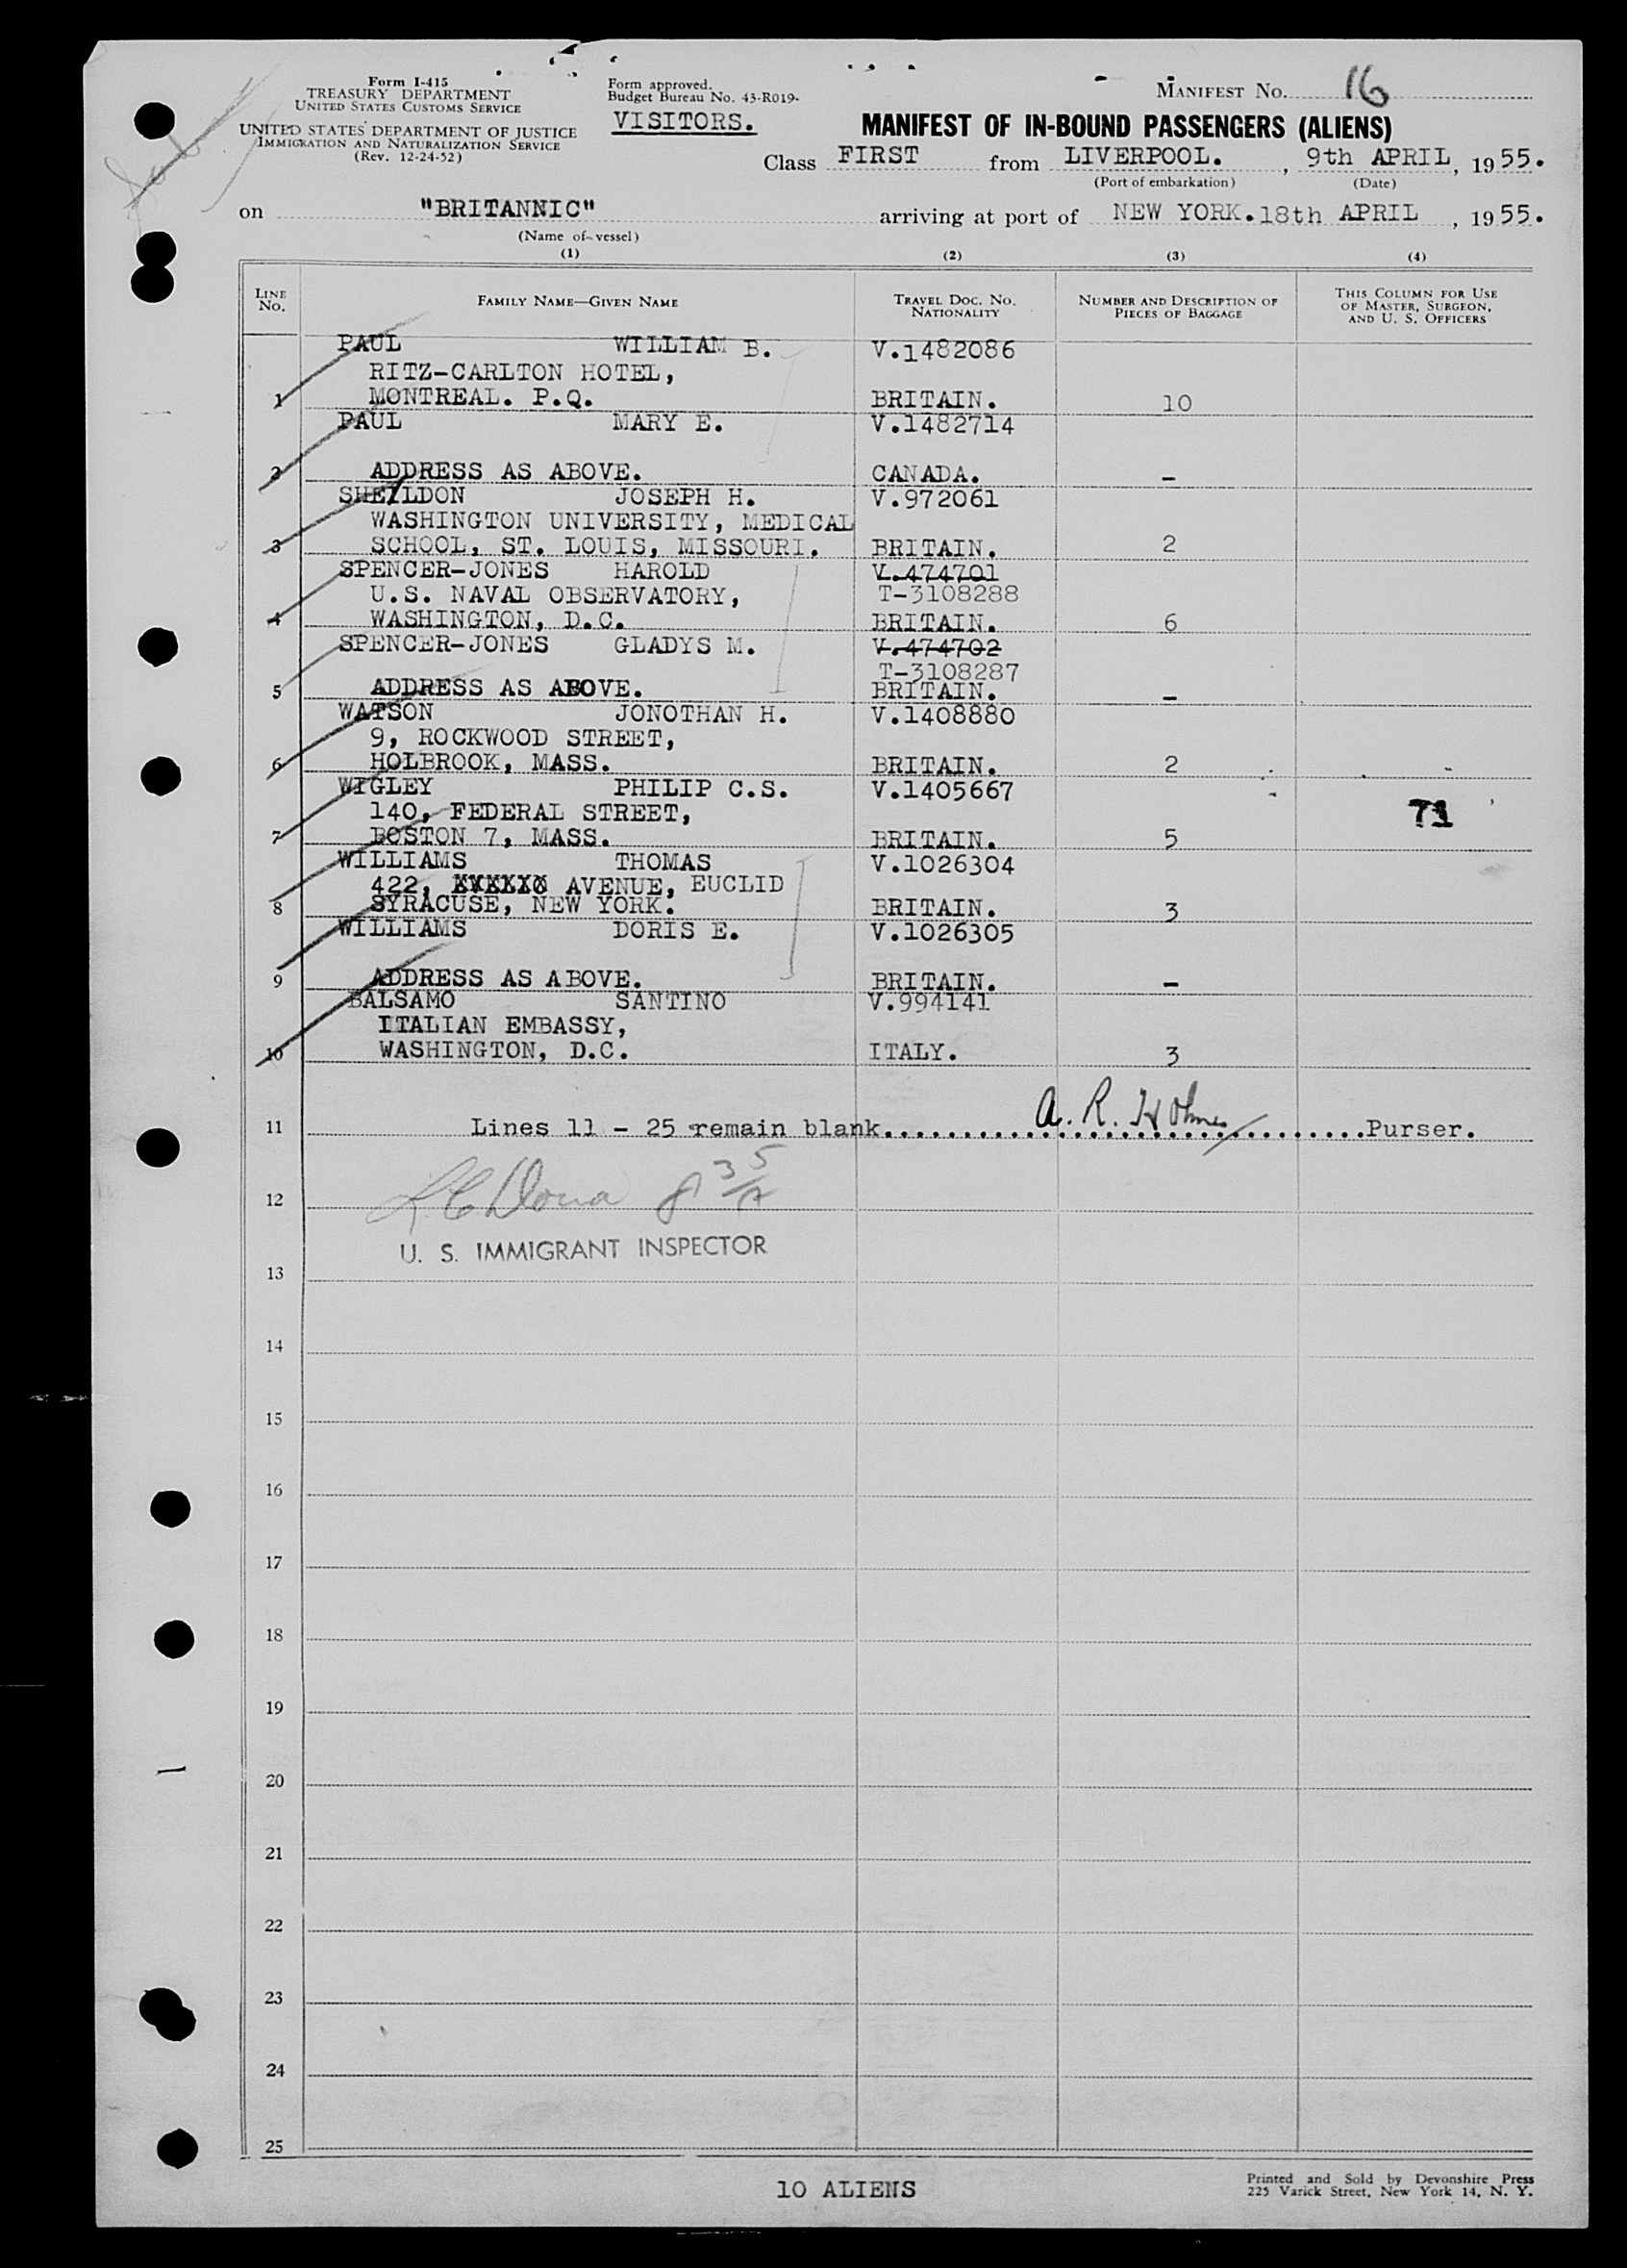 Form I-415
TREASURY DEPARTMENT
UNITED STATES CUSTOMS SERVICE
UNITED STATES DEPARTMENT OF JUSTICE
IMMIGRATION AND NATURALIZATION SERVICE
(Rev. 12-24-52)
Form approved.
Budget Bureau No. 43-R019-
VISITORS.
MANIFEST NO. 16
MANIFEST OF IN-BOUND PASSENGERS (ALIENS)
Class FIRST from LIVERPOOL. , 9th APRIL , 1955.
(Port of embarkation) (Date)
on "BRITANNIC" arriving at port of NEW YORK. 18th APRIL , 1955.
(Name of vessel)
(1) (2) (3) (4)
LINE NO. FAMILY NAME—GIVEN NAME TRAVEL DOC. NO. NATIONALITY NUMBER AND DESCRIPTION OF PIECES OF BAGGAGE THIS COLUMN FOR USE OF MASTER, SURGEON, AND U. S. OFFICERS
PAUL WILLIAM B. V.1482086
RITZ-CARLTON HOTEL,
1 MONTREAL. P.Q. BRITAIN. 10
PAUL MARY E. V.1482714
2 ADDRESS AS ABOVE. CANADA. –
SHEILDON JOSEPH H. V.972061
WASHINGTON UNIVERSITY, MEDICAL
3 SCHOOL, ST. LOUIS, MISSOURI. BRITAIN. 2
SPENCER-JONES HAROLD V.474701
U.S. NAVAL OBSERVATORY, T-3108288
4 WASHINGTON, D.C. BRITAIN. 6
SPENCER-JONES GLADYS M. V.474702
T-3108287
5 ADDRESS AS ABOVE. BRITAIN. –
WATSON JONOTHAN H. V.1408880
9, ROCKWOOD STREET,
6 HOLBROOK, MASS. BRITAIN. 2
WIGLEY PHILIP C.S. V.1405667
140, FEDERAL STREET, 71
7 BOSTON 7, MASS. BRITAIN. 5
WILLIAMS THOMAS V.1026304
422, AVENUE, EUCLID
8 SYRACUSE, NEW YORK. BRITAIN. 3
WILLIAMS DORIS E. V.1026305
9 ADDRESS AS ABOVE. BRITAIN. –
BALSAMO SANTINO V.994141
ITALIAN EMBASSY,
10 WASHINGTON, D.C. ITALY. 3
11 Lines 11 - 25 remain blank. A. R. Holmes Purser.
12
U. S. IMMIGRANT INSPECTOR
13
14
15
16
17
18
19
20
21
22
23
24
25
10 ALIENS
Printed and Sold by Devonshire Press
225 Varick Street, New York 14, N. Y.